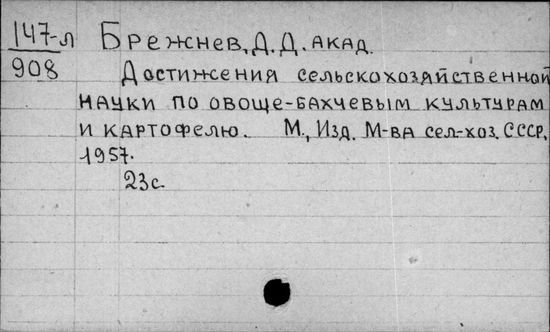 147-л Брежнев, Д.Д. акад.
908 Достижения сельскохозяйственной
науки по овоще-бахчевым культурам
и картофелю. М., Изд. М-ва сел-хоз. СССР,
1957.
23с.